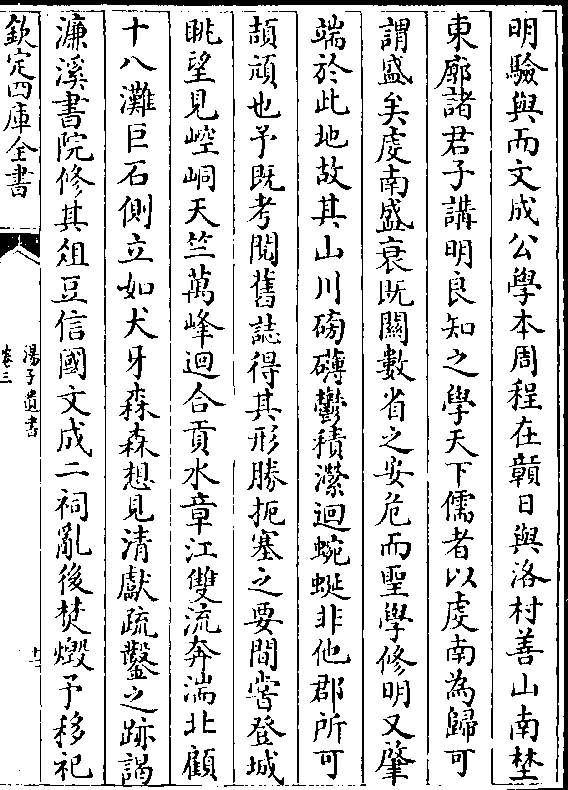 明驗與而文成公學本周程在贛日與洛村善山南埜
東廓諸君子講明良知之學天下儒者以䖍南為歸可
謂盛矣䖍南盛衰既關數省之安危而聖學修明又肇
端於此地故其山川磅礴鬱積瀠迴蜿蜒非他郡所可
頡頏也予既考閱舊誌得其形勝扼塞之要間嘗登城
眺望見崆峒天竺萬峰迴合貢水章江雙流奔湍北顧
十八灘巨石側立如犬牙森森想見清獻疏鑿之跡謁
濂溪書院修其俎豆信國文成二祠亂後焚燬予移祀
欽定四庫全書
湯子遺書
卷三
十二